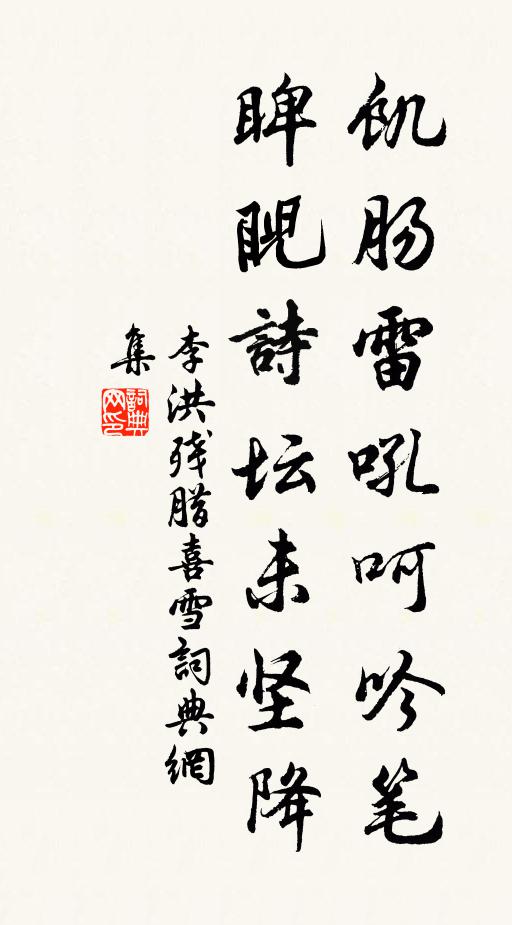 飢肠雷吼呵吟笔
睥睨詩坛未坚降
李洪残腊喜雪詞典網
集
詞典网印